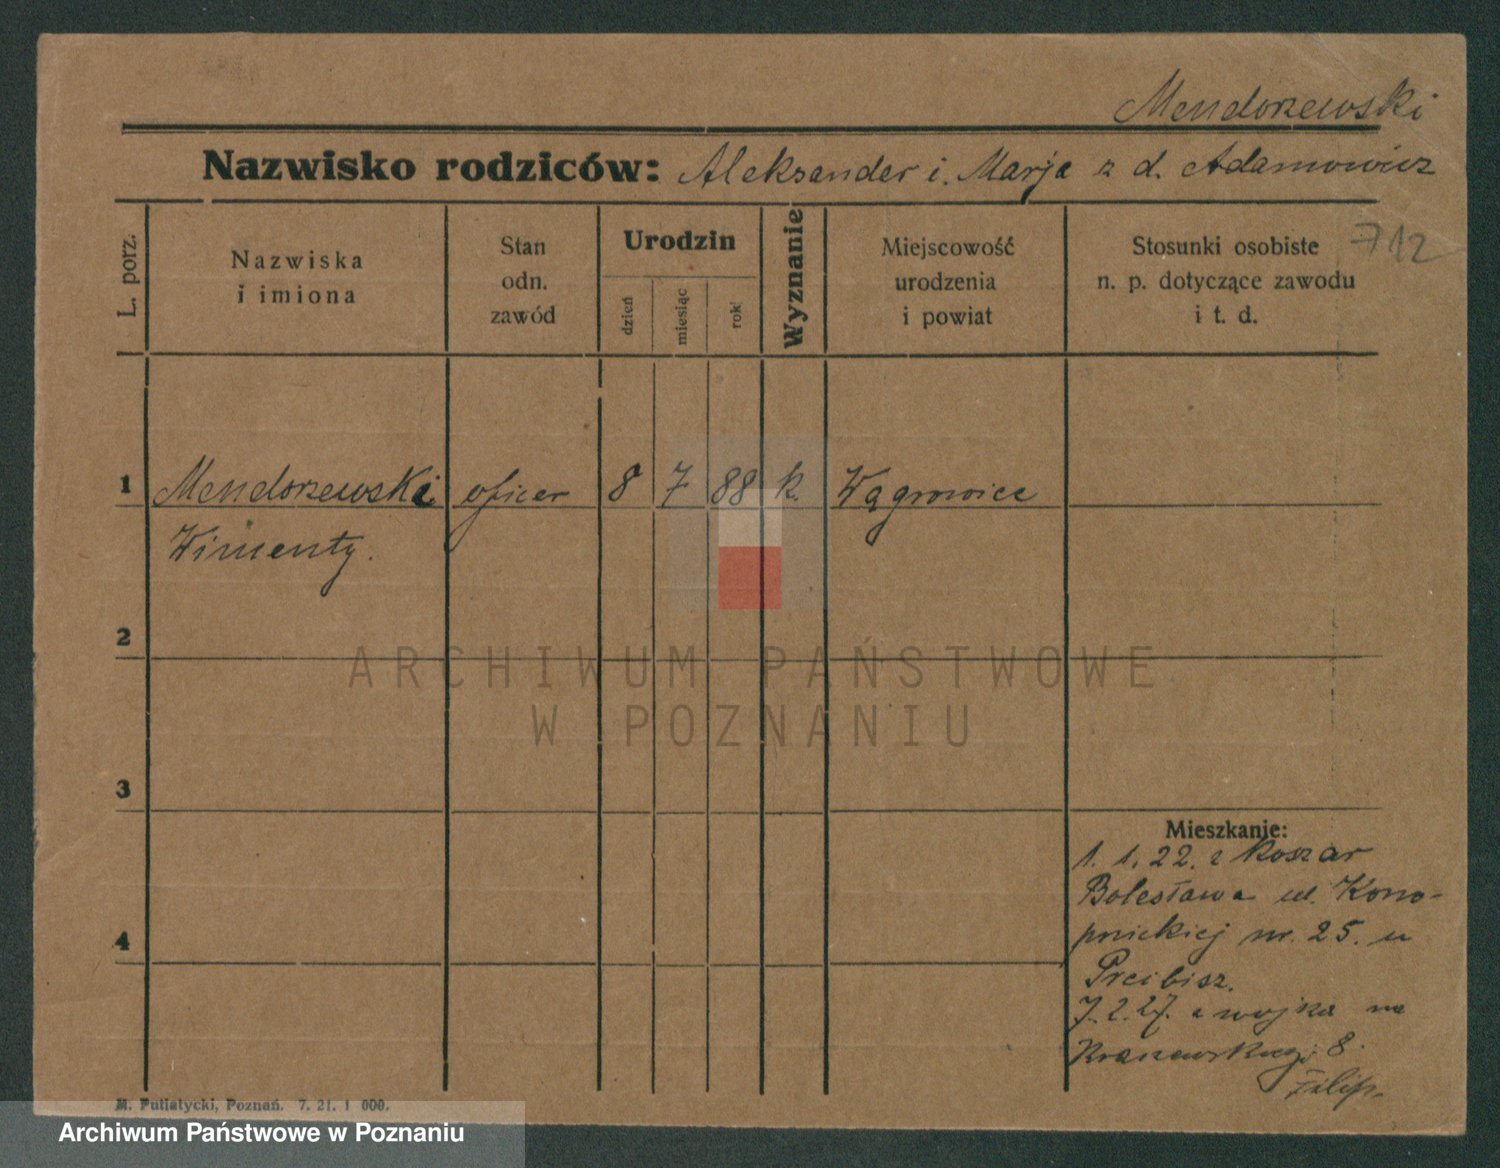 Mendorzewski
Nazwisko rodziców: Aleksander i. Marja z d. Adamowicz
712
L. porz.
Nazwiska
i imiona
Stan
odn.
zawód
Urodzin
dzień
miesiąc
rok
Wyznanie
Miejscowość
urodzenia
i powiat
Stosunki osobiste
n. p. dotyczące zawodu
i t. d.
1 Mendorzewski oficer 8 7 88 k. Wągrowice
Winienty.
2
ARCHIWUM PAŃSTWOWE
W POZNANIU
3
Mieszkanie:
1. 1. 22. z Koszar
Bolesława ul. Kono-
pnickiej nr. 25. u
Preibisz.
7. 2. 27. z wojska na
8.
Filip.
4
M. Putiatycki, Poznań. 7. 21. 1 000.
Archiwum Państwowe w Poznaniu